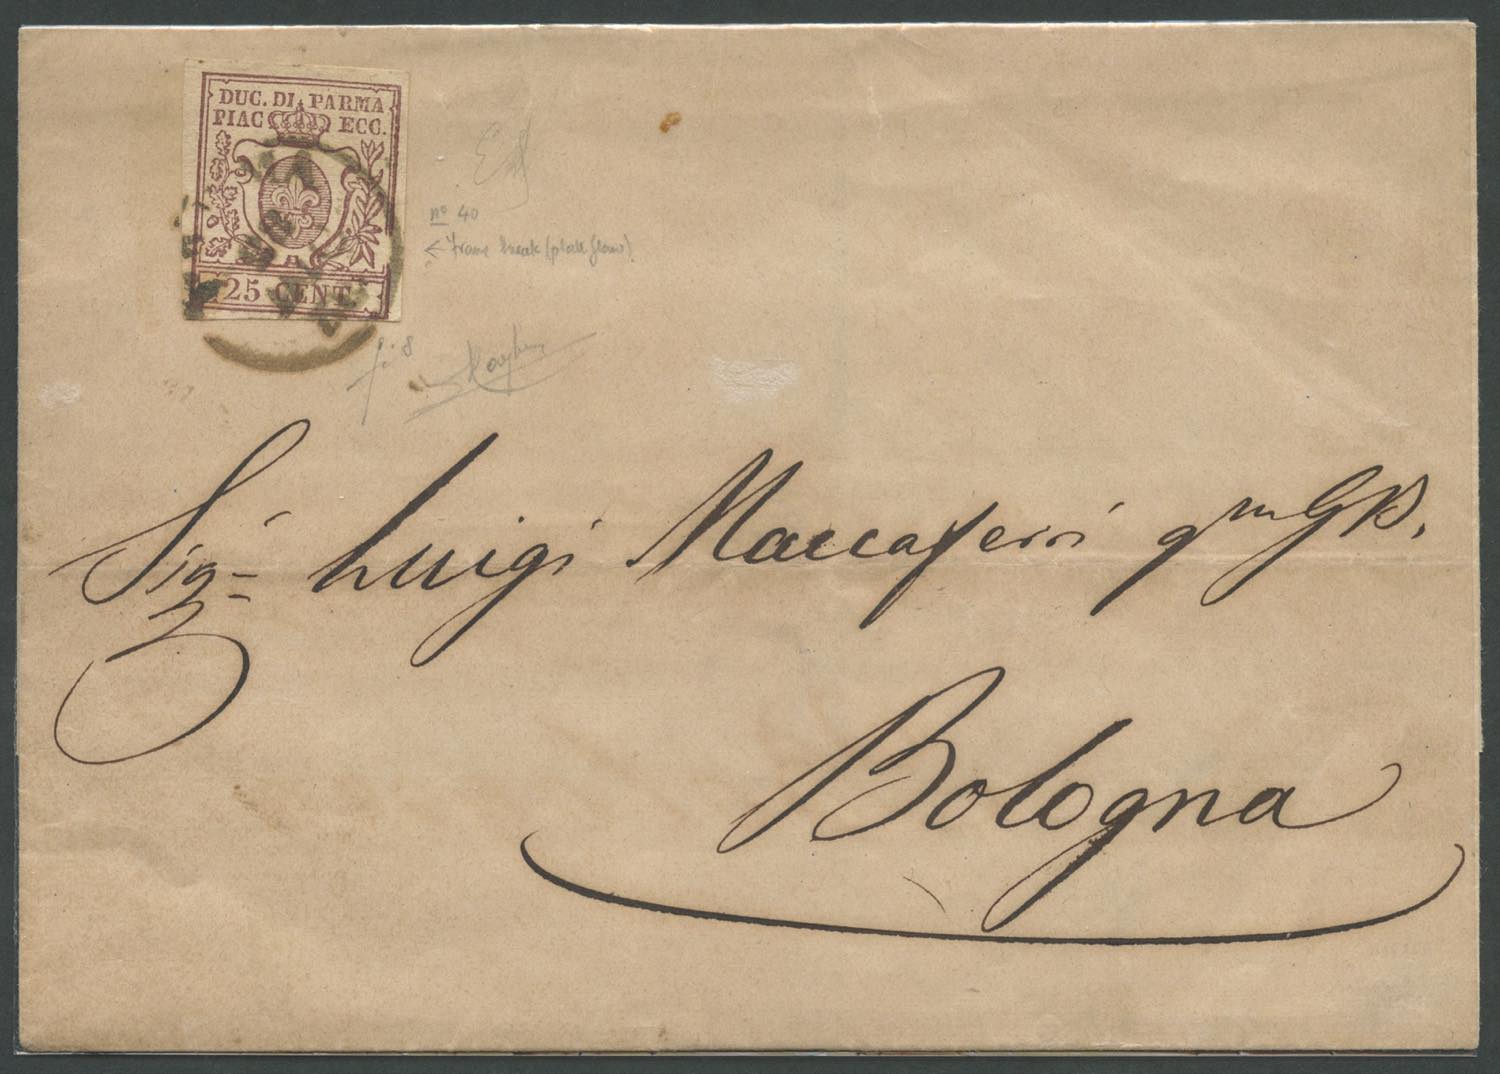 DUC. DI PARMA
PIAC ECC.
25 CENT.
nº 40
← frame break (plate flaw)
Sigr Luigi Maccaferri qm GB.
Bologna